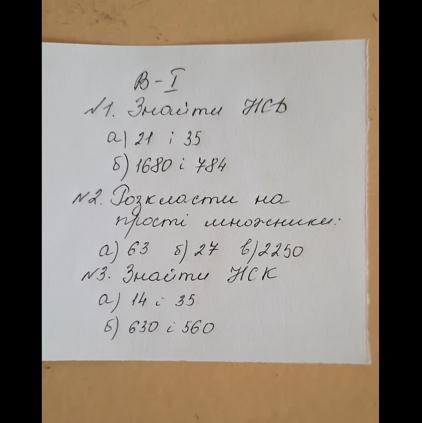 В-I
№1. Знайти НСД
а) 21 і 35
б) 1680 і 784
№2. Розкласти на
прості множники:
а) 63 б) 27 в) 2250
№3. Знайти НСК
а) 14 і 35
б) 630 і 560